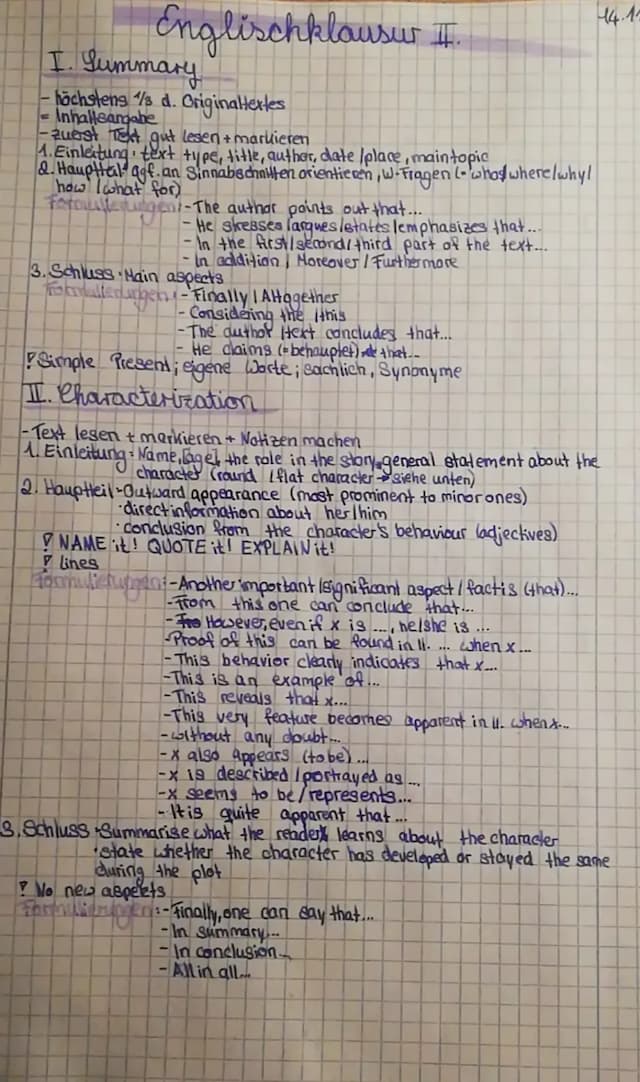 Englischklausur II.
14.1
I. Summary
- höchstens 1/3 d. Originaltextes
= Inhaltsangabe
- zuerst Text gut lesen + markieren
1. Einleitung: text type, title, author, date/place, main topic
2. Hauptteil: ggf. an Sinnabschnitten orientieren, W-Fragen (- who/where/why/
how/what for)
Formulierungen: - The author points out that...
- He stresses/argues/states/emphasizes that...
- In the first/second/third part of the text...
- In addition / Moreover / Furthermore
3. Schluss: Main aspects
Formulierungen: - Finally / Altogether
- Considering the / this
- The author / text concludes that...
- He claims (= behauptet) that...
! Simple Present; eigene Worte; sachlich, Synonyme
II. Characterization
- Text lesen + markieren + Notizen machen
1. Einleitung: Name, (age), the role in the story, general statement about the
character (round / flat character → siehe unten)
2. Hauptteil: Outward appearance (most prominent to minor ones)
· direct information about her/him
· conclusion from the character's behaviour (adjectives)
! NAME it! QUOTE it! EXPLAIN it!
! lines
Formulierungen: - Another important/significant aspect/fact is (that)...
- From this one can conclude that...
- However, even if x is ..., he/she is ...
- Proof of this can be found in ll. ... when x...
- This behavior clearly indicates that x...
- This is an example of...
- This reveals that x...
- This very feature becomes apparent in ll. when x...
- without any doubt...
- x also appears (to be)...
- x is described / portrayed as ...
- x seems to be / represents...
- It is quite apparent that ...
3. Schluss · Summarise what the reader learns about the character
· state whether the character has developed or stayed the same
during the plot
! No new aspects
Formulierungen: - Finally, one can say that...
- In summary...
- In conclusion...
- All in all...